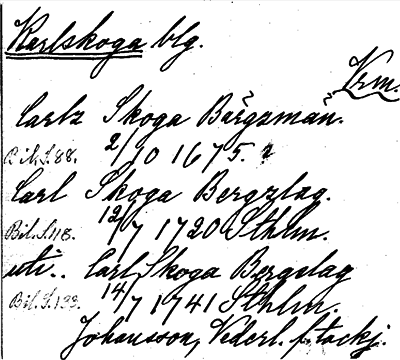 Karlskoga blg.
Vrm.
Carlz Skoga Bärgzmän.
Bil. S. 88. 2/10 1675.
Carl Skoga Bergzlag.
Bil. S. 118. 12/7 1720 Sthlm.
uti.. Carl Skoga Bergslag
Bil. S. 133. 14/7 1741 Sthlm.
Johansson, Nederl. i Stockj.